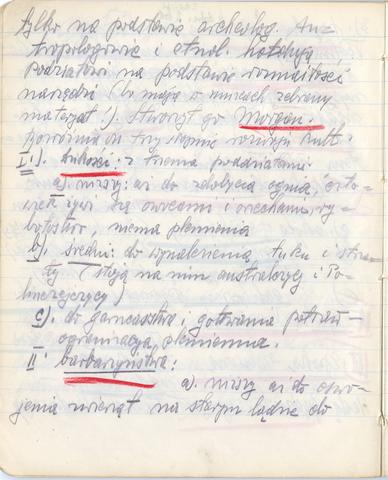 tylko na podstawie archeolog. An-
tropologowie i etnol. hołdują
podziałowi na podstawie rozmaitości
narzędzi (bo mają w muzeach zebrany
materjał!). Stworzył go Morgan.
rozróżnia on trzy stopnie rozwoju kult.
I!). dzikości: z trzema poddziałami
a). niższy: aż do zdobycia ognia, czło-
wiek żywi się owocami i orzechami, ry-
bołostwo, niema plemienia
b). średni: do wynalezienia łuku i strza-
ły (stoją na nim australczycy i Po-
linezyjczycy)
c). do garncarstwa i gotowania potraw -
organizacja plemienna.
II. barbarzyństwa:
a). niższy aż do oswo-
jenia zwierząt na starym lądzie do